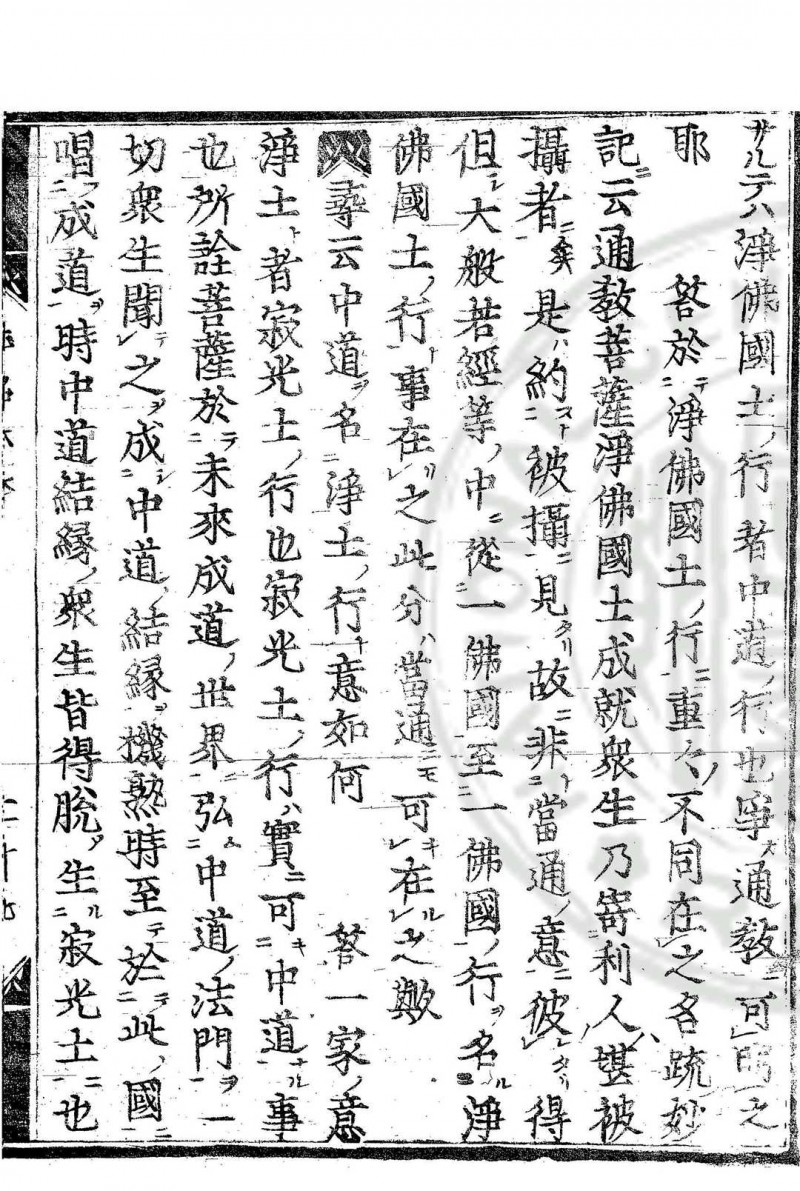 サルニテハ淨佛國土ノ行者中道ノ行也寧ス通教ニ可明之
耶　答於テ淨佛國土ノ行ニ重々ノ不同在之名疏妙
記ニ云通教菩薩淨佛國土成就衆生乃寄利人ノ堪被
攝者ニ矣是ハ約スト被攝ニ見タリ故ニ非ト當通ノ意ニ彼レタリ得
但シ大般若經等ノ中ニ從一佛國至一佛國ノ行ヲ名ル淨
佛國土ノ行ト事在リ之此分ハ當通ニモ可キ在ル之歟
尋云中道ヲ名淨土ノ行ト意如何　答一家ノ意
淨土ト者寂光土ノ行也寂光土ノ行ハ實ニ可キ中道ナル事
也所詮菩薩於テ未來成道ノ世界ニ弘ム中道ノ法門ヲ一
切衆生聞テ之ヲ成シ中道ノ結縁ヲ機熟時至テ於此ノ國ニ
唱フ成道ヲ時中道結縁ノ衆生皆得脫ノ生ル寂光土ニ也